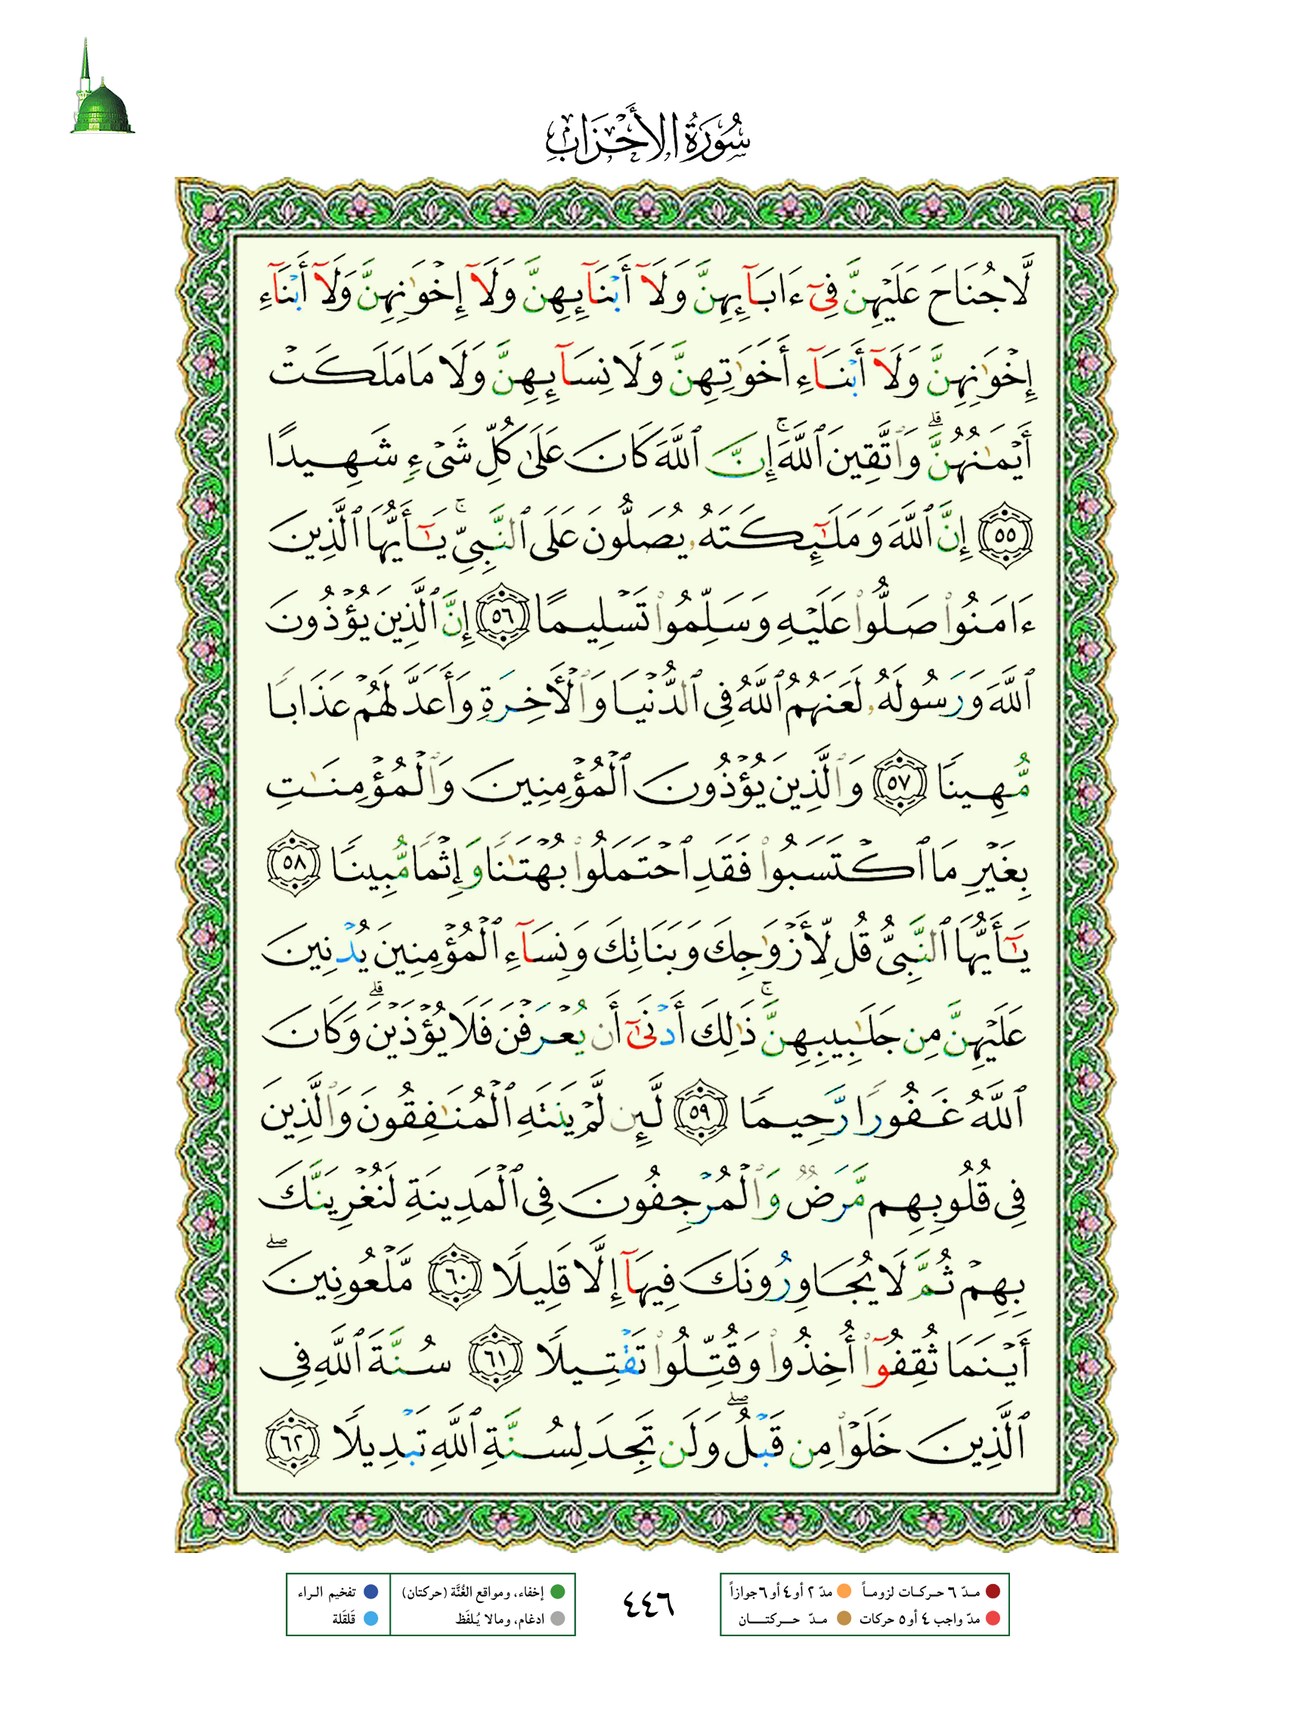 سُورَةُ الأَحْزَابِ
لَّا جُنَاحَ عَلَيْهِنَّ فِىٓ ءَابَآئِهِنَّ وَلَآ أَبْنَآئِهِنَّ وَلَآ إِخْوَٰنِهِنَّ وَلَآ أَبْنَآءِ
إِخْوَٰنِهِنَّ وَلَآ أَبْنَآءِ أَخَوَٰتِهِنَّ وَلَا نِسَآئِهِنَّ وَلَا مَا مَلَكَتْ
أَيْمَٰنُهُنَّ ۗ وَٱتَّقِينَ ٱللَّهَ ۚ إِنَّ ٱللَّهَ كَانَ عَلَىٰ كُلِّ شَىْءٍ شَهِيدًا
٥٥ إِنَّ ٱللَّهَ وَمَلَٰٓئِكَتَهُۥ يُصَلُّونَ عَلَى ٱلنَّبِىِّ ۚ يَٰٓأَيُّهَا ٱلَّذِينَ
ءَامَنُوا۟ صَلُّوا۟ عَلَيْهِ وَسَلِّمُوا۟ تَسْلِيمًا ٥٦ إِنَّ ٱلَّذِينَ يُؤْذُونَ
ٱللَّهَ وَرَسُولَهُۥ لَعَنَهُمُ ٱللَّهُ فِى ٱلدُّنْيَا وَٱلْأَخِرَةِ وَأَعَدَّ لَهُمْ عَذَابًا
مُّهِينًا ٥٧ وَٱلَّذِينَ يُؤْذُونَ ٱلْمُؤْمِنِينَ وَٱلْمُؤْمِنَٰتِ
بِغَيْرِ مَا ٱكْتَسَبُوا۟ فَقَدِ ٱحْتَمَلُوا۟ بُهْتَٰنًا وَإِثْمًا مُّبِينًا ٥٨
يَٰٓأَيُّهَا ٱلنَّبِىُّ قُل لِّأَزْوَٰجِكَ وَبَنَاتِكَ وَنِسَآءِ ٱلْمُؤْمِنِينَ يُدْنِينَ
عَلَيْهِنَّ مِن جَلَٰبِيبِهِنَّ ۚ ذَٰلِكَ أَدْنَىٰٓ أَن يُعْرَفْنَ فَلَا يُؤْذَيْنَ ۗ وَكَانَ
ٱللَّهُ غَفُورًا رَّحِيمًا ٥٩ لَّئِن لَّمْ يَنتَهِ ٱلْمُنَٰفِقُونَ وَٱلَّذِينَ
فِى قُلُوبِهِم مَّرَضٌ وَٱلْمُرْجِفُونَ فِى ٱلْمَدِينَةِ لَنُغْرِيَنَّكَ
بِهِمْ ثُمَّ لَا يُجَاوِرُونَكَ فِيهَآ إِلَّا قَلِيلًا ٦٠ مَّلْعُونِينَ ۖ
أَيْنَمَا ثُقِفُوٓا۟ أُخِذُوا۟ وَقُتِّلُوا۟ تَقْتِيلًا ٦١ سُنَّةَ ٱللَّهِ فِى
ٱلَّذِينَ خَلَوْا۟ مِن قَبْلُ ۖ وَلَن تَجِدَ لِسُنَّةِ ٱللَّهِ تَبْدِيلًا ٦٢
مدّ ٦ حركات لزوماً مدّ ٢ أو ٤ أو ٦ جوازاً
مدّ واجب ٤ أو ٥ حركات مدّ حركتان
٤٤٦
إخفاء، ومواقع الغُنَّة (حركتان) تفخيم الراء
ادغام، ومالا يُلفَظ قَلقَلة